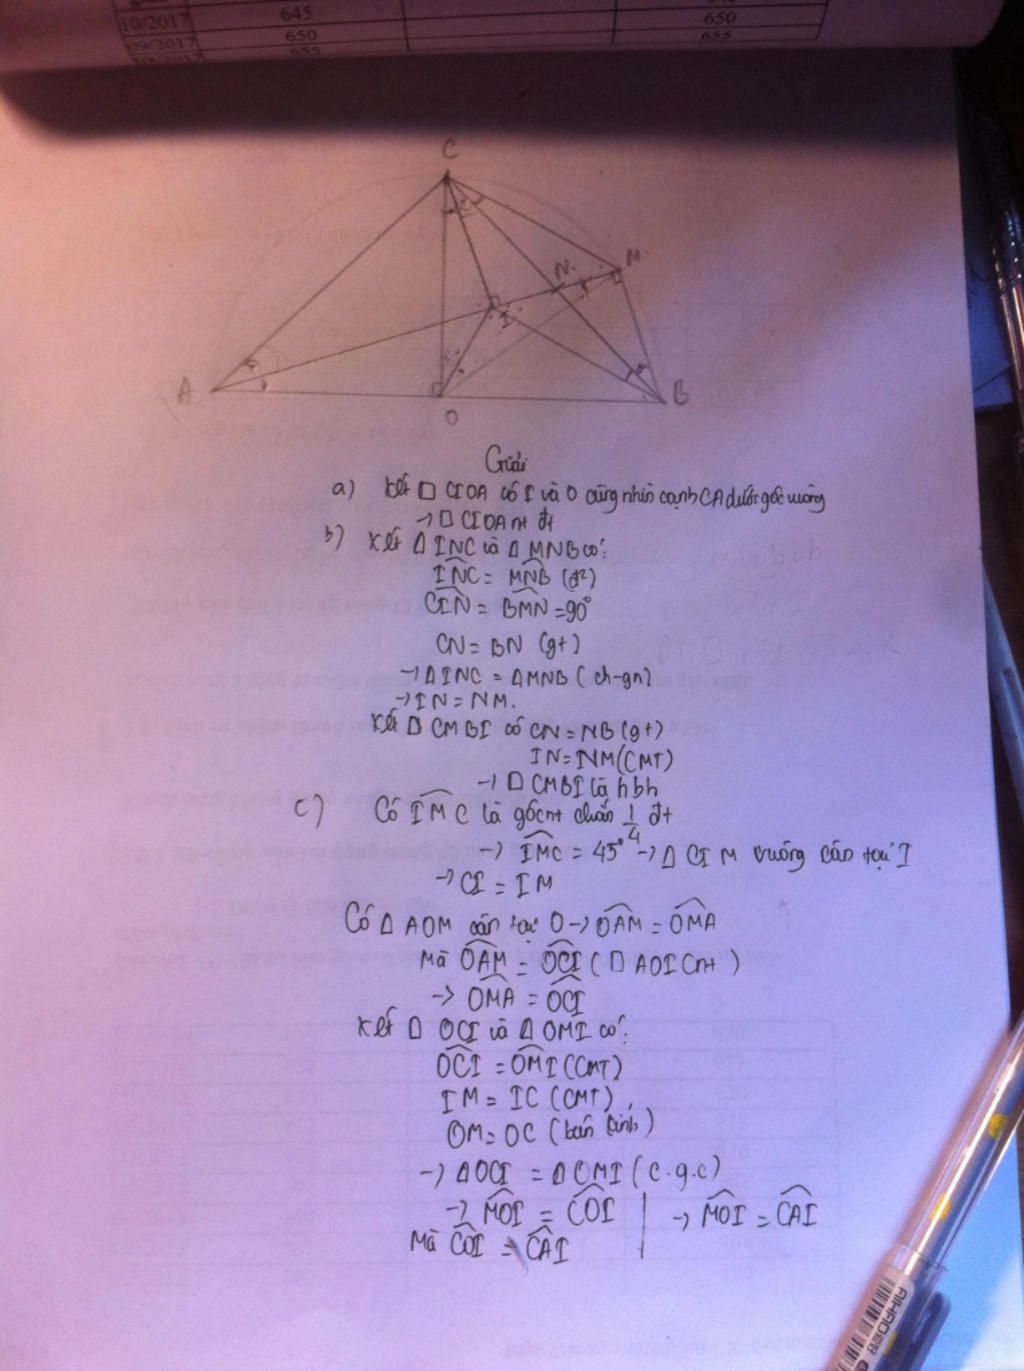 10/2017 645 650
09/2017 650 655
655
C
M
N
I
A
O
B
Giải
a) Xét □ CIOA có I và O cùng nhìn cạnh CA dưới góc vuông
→ □ CIOA nt đt
b) Xét Δ INC và Δ MNB có:
INC = MNB (đ²)
CIN = BMN = 90°
CN = BN (gt)
→ Δ INC = Δ MNB (ch-gn)
→ IN = NM.
Xét □ CMBI có CN = NB (gt)
IN = NM (CMT)
→ □ CMBI là hbh
c) Có IMC là góc nt chắn 1/4 đt
→ IMC = 45° → Δ CIM vuông cân tại I
→ CI = IM
Có Δ AOM cân tại O → OAM = OMA
Mà OAM = OCI (□ AOIC nt)
→ OMA = OCI
Xét Δ OCI và Δ OMI có:
OCI = OMI (CMT)
IM = IC (CMT),
OM = OC (bán kính)
→ Δ OCI = Δ OMI (c.g.c)
→ MOI = COI | → MOI = CAI
Mà COI = CAI